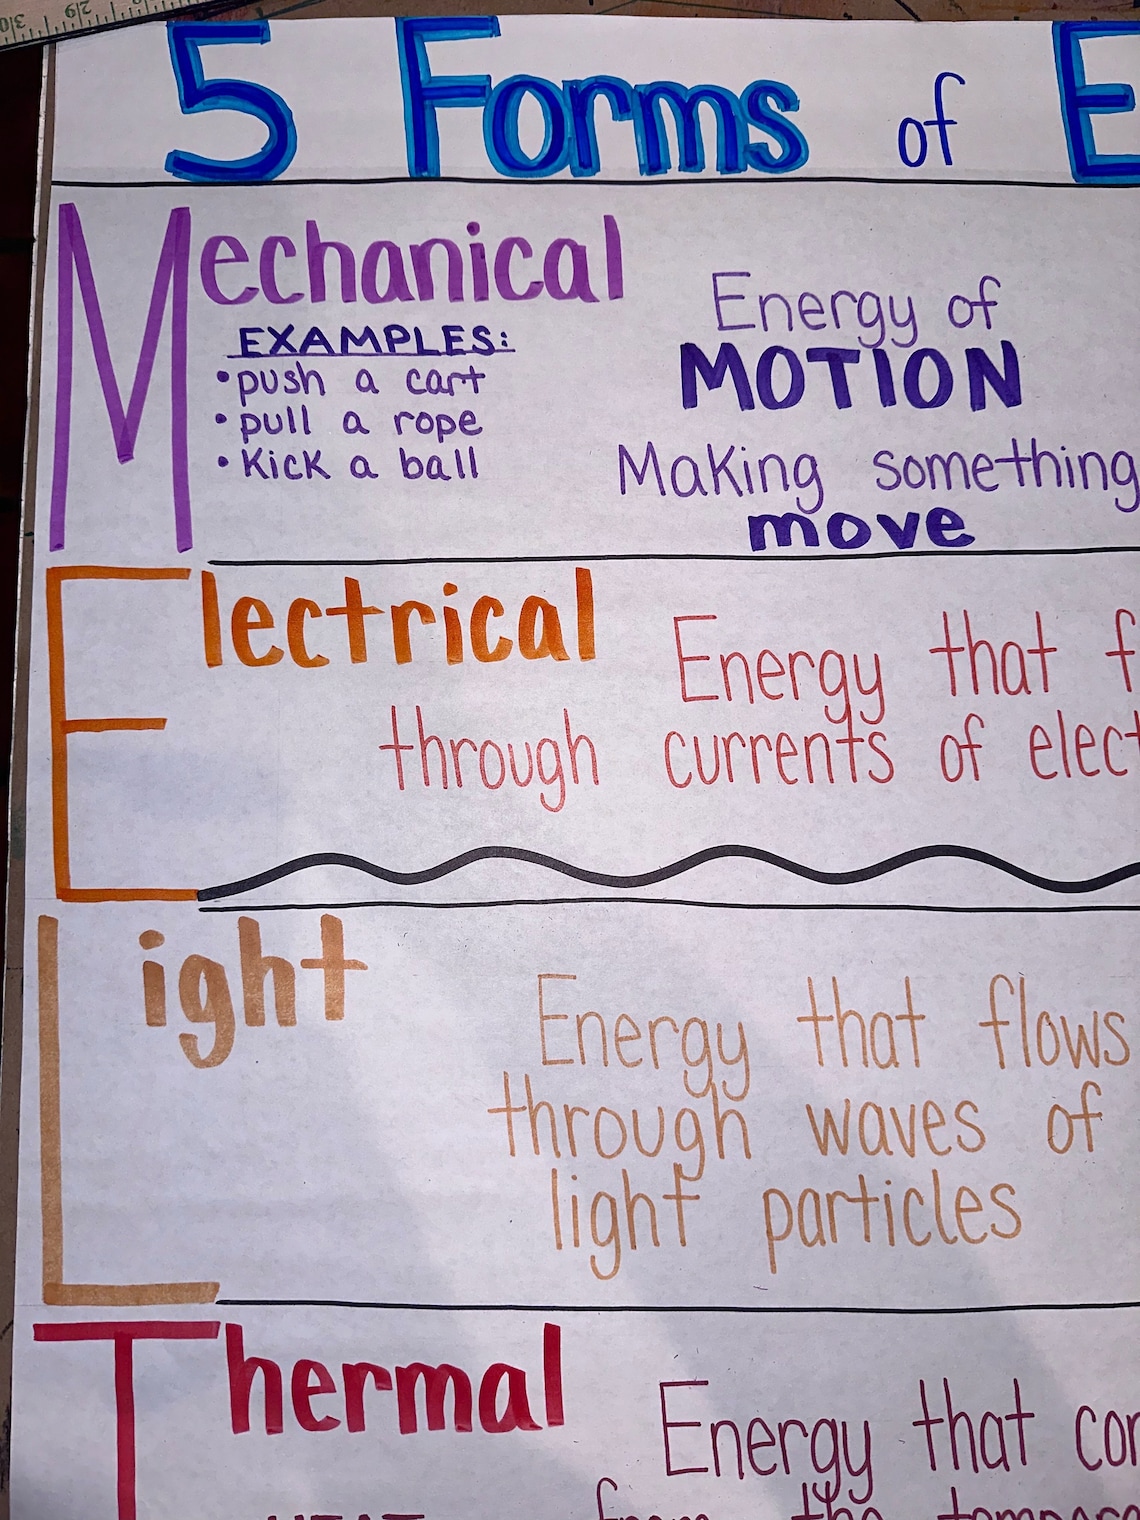 5 Forms of E
Mechanical
EXAMPLES:
• push a cart
• pull a rope
• Kick a ball
Energy of
MOTION
Making something
move
Electrical
Energy that f
through currents of elect
Light
Energy that flows
through waves of
light particles
Thermal
Energy that com
from the tempera
HEAT